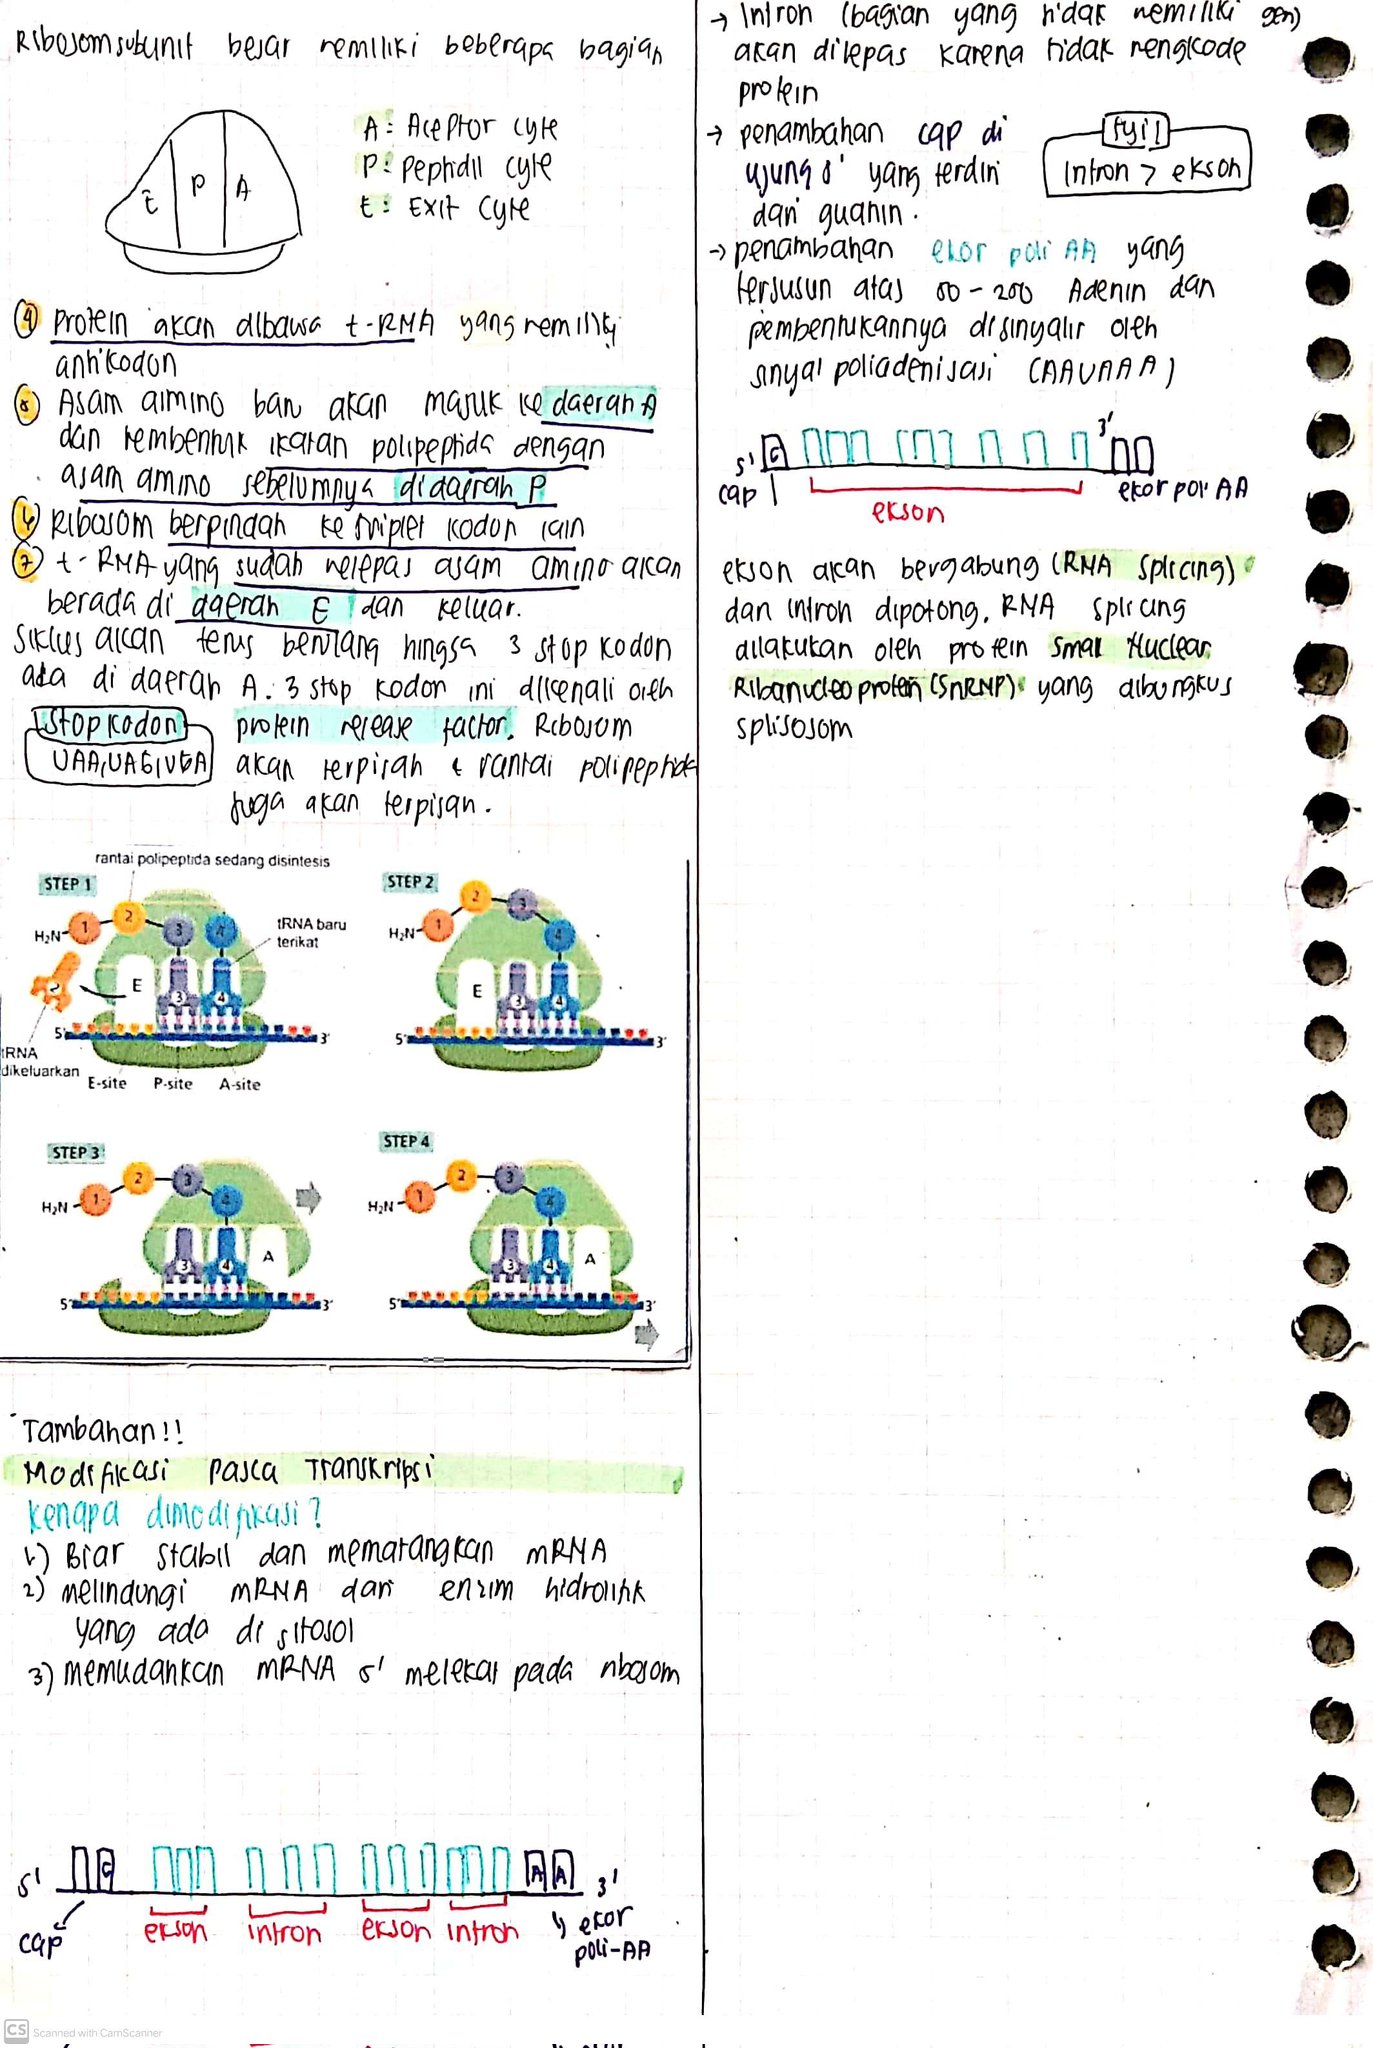 Ribosom subunit besar memiliki beberapa bagian
E P A
A : Aceptor cyte
P : Peptidil cyte
E : Exit cyte
④ Protein akan dibawa t-RNA yang memiliki
antikodon
⑤ Asam aimino baru akan masuk ke daerah A
dan membentuk ikatan polipeptida dengan
asam amino sebelumnya di daerah P
⑥ Ribosom berpindah ke triplet kodon lain
⑦ t-RNA yang sudah melepas asam amino akan
berada di daerah E dan keluar.
Siklus akan terus berulang hingga 3 stop kodon
ada di daerah A. 3 stop kodon ini dikenali oleh
Stop kodon
UAA, UAG, UGA
protein release factor. Ribosom
akan terpisah & rantai polipeptida
juga akan terpisah.
rantai polipeptida sedang disintesis
STEP 1
H₂N 1 2 3 4
tRNA baru
terikat
2 E 3 4
5' 3'
tRNA
dikeluarkan
E-site P-site A-site
STEP 2
H₂N 1 2 3 4
E 3 4
5' 3'
STEP 3
H₂N 1 2 3 4
3 4 A
5' 3'
STEP 4
H₂N 1 2 3 4
3 4 A
5' 3'
Tambahan!!
Modifikasi Pasca Transkripsi
kenapa dimodifikasi?
1) Biar stabil dan mematangkan mRNA
2) melindungi mRNA dari enzim hidrolitik
yang ada di sitosol
3) memudahkan mRNA 5' melekat pada ribosom
5' G A A 3'
cap ekson intron ekson intron ekor
poli-AA
→ Intron (bagian yang tidak memiliki gen)
akan dilepas karena tidak mengkode
protein
→ penambahan cap di
ujung 5' yang terdiri
dari guanin.
fyi!
intron > ekson
→ penambahan ekor poli AA yang
tersusun atas 50-200 Adenin dan
pembentukannya disinyalir oleh
sinyal poliadenisasi (AAUAAA)
5' G 3'
cap ekson ekor poli AA
ekson akan bergabung (RNA splicing)
dan intron dipotong. RNA splicing
dilakukan oleh protein Small Nuclear
Ribonucleoprotein (SnRNP) yang dibungkus
splisosom
CS Scanned with CamScanner